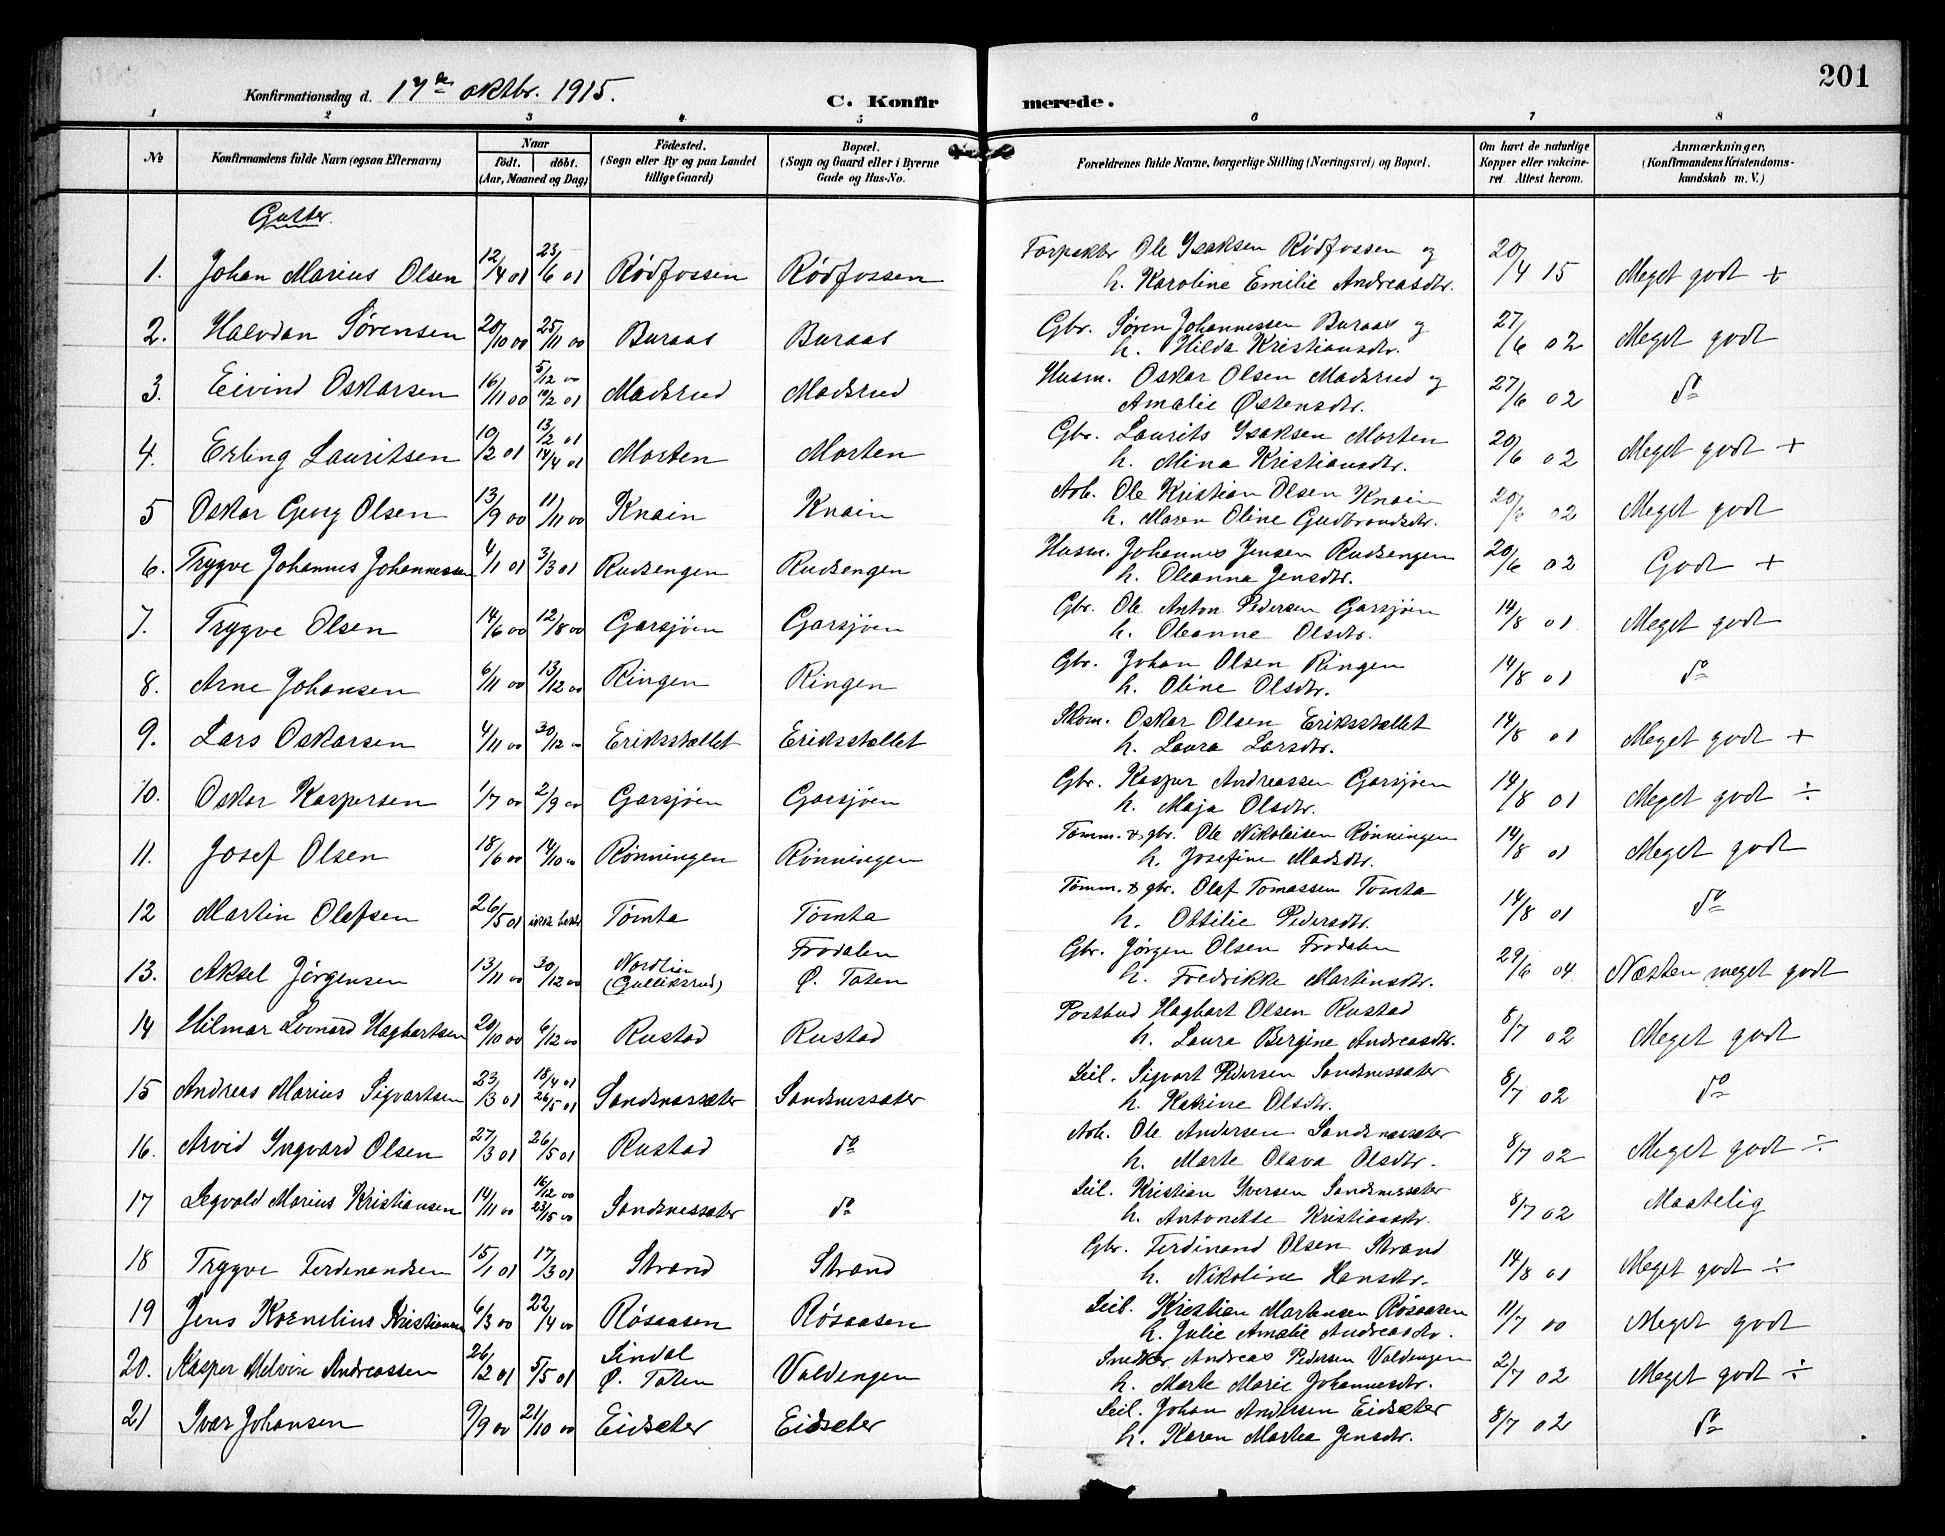 201
Konfirmationsdag d. 17de oktbr. 1915. C. Konfir merede.
1 2 3 4 5 6 7 8
No Konfirmandens fulde Navn (ogsaa Efternavn) Naar født. døbt. (Aar, Maaned og Dag) Fødested. (Sogn eller By og paa Landet tillige Gaard) Bopæl. (Sogn og Gaard eller i Byerne Gade og Hus-No. Forældrenes fulde Navne, borgerlige Stilling (Næringsvei) og Bopæl. Om havt de naturlige Kopper eller vakcineret Attest herom. Anmærkninger, (Konfirmandens Kristendomskundskab m. V.)
Gutter.
1. Johan Marius Olsen 12/4 01 23/6 01 Rødfossen Rødfossen Forpakter Ole Isaksen Rødfossen og
h. Karoline Emilie Andreasdtr. 20/4 15 Meget godt +
2. Halvdan Sørensen 20/10 00 25/11 00 Buraas Buraas Gbr. Søren Johannessen Buraas og
h. Hilda Kristiansdtr. 27/6 02 Meget godt
3. Eivind Oskarsen 16/11 00 5/12 00 10/2 01 Madsrud Madsrud Husm. Oskar Olsen Madsrud og
Amalie Østensdtr. 27/6 02 do
4. Erling Lauritsen 10/2 01 13/2 01 14/4 01 Morten Morten Gbr. Laurits Isaksen Morten
h. Mina Kristiansdtr. 20/6 02 Meget godt +
5 Oskar Georg Olsen 13/9 00 11/11 00 Knain Knain Arb. Ole Kristian Olsen Knain
h. Maren Oline Gudbrandsdtr. 20/6 02 Meget godt
6. Trygve Johannes Johannessen 4/1 01 3/3 01 Rudsengen Rudsengen Husm. Johannes Jensen Rudsengen
h. Oleanna Jensdtr. 20/6 02 Godt +
7. Trygve Olsen 14/6 00 12/8 00 Garsjøen Garsjøen Gbr. Ole Anton Pedersen Garsjøen
h. Oleanne Olsdtr. 14/8 01 Meget godt
8. Arne Johansen 6/11 00 13/12 00 Ringen Ringen Gbr. Johan Olsen Ringen
h. Oline Olsdtr. 14/8 01 do
9. Lars Oskarsen 4/11 00 30/12 00 Eriksstallet Eriksstallet Skom. Oskar Olsen Eriksstallet
h. Laura Larsdtr. 14/8 01 Meget godt +
10. Oskar Kaspersen 1/7 00 2/9 00 Garsjøen Garsjøen Gbr. Kasper Andreassen Garsjøen
h. Maja Olsdtr. 14/8 01 Meget godt ÷
11. Josef Olsen 18/6 00 14/10 00 Rønningen Rønningen Tømm. & gbr. Ole Nikolaisen Rønningen
h. Josefine Madsdtr. 14/8 01 Meget godt
12 Martin Olafsen 26/5 01 Tømta Tømta Tømm. & gbr. Olaf Tomassen Tømta
h. Ottilie Pedersdtr. 14/8 01 do
13. Aksel Jørgensen 13/11 00 30/12 00 Nordlien (Gulliksrud) Frodalen Ø. Toten Gbr. Jørgen Olsen Frodalen
h. Fredrikke Martinsdtr. 29/6 04 Næsten meget godt
14 Hilmar Leonard Hagbartsen 20/10 00 6/12 00 Rustad Rustad Postbud Hagbart Olsen Rustad
h. Laura Bergine Andreasdtr. 8/7 02 Meget godt
15 Andreas Marius Sigvartsen 23/3 01 18/4 01 26/5 01 Sandnessæter Sandnessæter Leil. Sigvart Pedersen Sandnessæter
h. Katrine Olsdtr. 8/7 02 do
16. Arvid Ingvard Olsen 27/3 01 26/5 01 Rustad do Arb. Ole Andersen Sandnessæter
h. Marte Olava Olsdtr. 8/7 02 Meget godt ÷
17 Segvald Marius Kristiansen 14/11 00 16/12 00 23/15 00 Sandnessæter do Leil. Kristian Iversen Sandnessæter
h. Antonette Kristiansdtr. 8/7 02 Maatelig
18 Trygve Ferdinandsen 15/1 01 17/3 01 Strand Strand Gbr. Ferdinand Olsen Strand
h. Nikoline Hansdtr. 14/8 01 Meget godt ÷
19 Jens Kornelius Kristiansen 6/3 00 22/4 00 Røsaasen Røsaasen Leil. Kristian Martinsen Røsaasen
h. Julie Amalie Andreasdtr. 11/7 00 Meget godt
20. Kasper Melvin Andreassen 26/2 01 5/5 01 Sindal Ø. Toten Valdengen Snedker. Andreas Pedersen Valdengen
h. Marte Marie Johannesdtr. 2/7 02 Meget godt ÷
21 Ivar Johansen 9/9 00 21/10 00 Eidsæter Eidsæter Leil. Johan Andersen Eidsæter
h. Karen Martea Jensdtr. 8/7 02 do